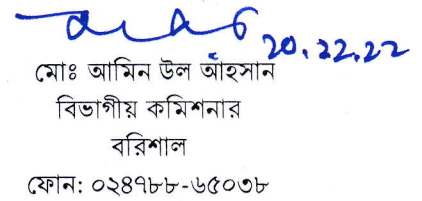 ২০.১১.২২
মোঃ আমিন উল আহসান
বিভাগীয় কমিশনার
বরিশাল
ফোন: ০২৪৭৮৮-৬৫০৩৮